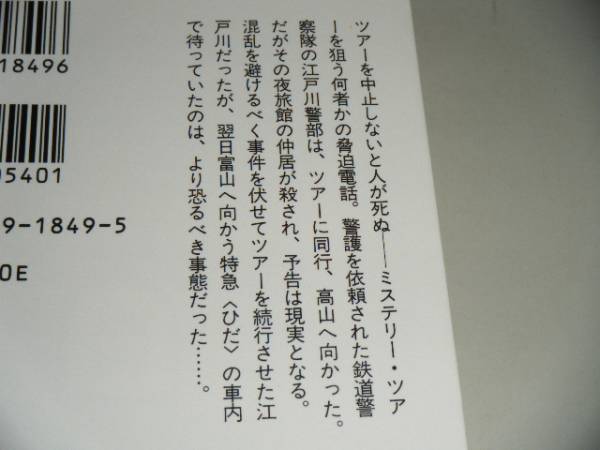 ツアーを中止しないと人が死ぬ――ミステリー・ツア
ーを狙う何者かの脅迫電話。警護を依頼された鉄道警
察隊の江戸川警部は、ツアーに同行、高山へ向かった。
だがその夜旅館の仲居が殺され、予告は現実となる。
混乱を避けるべく事件を伏せてツアーを続行させた江
戸川だったが、翌日富山へ向かう特急〈ひだ〉の車内
で待っていたのは、より恐るべき事態だった……。
18496
05401
9-1849-5
0E